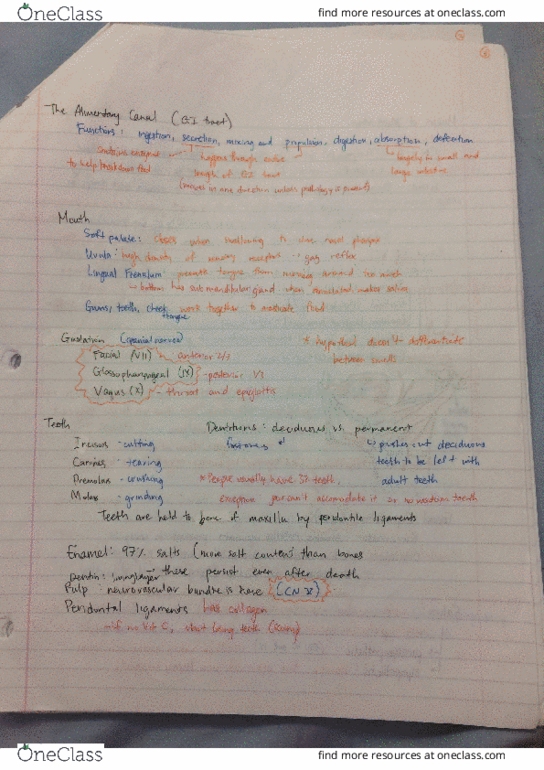 OneClass
find more resources at oneclass.com
The Alimentary Canal (GI tract)
Functions: ingestion, secretion, mixing and propulsion, digestion, absorption, defecation
contains enzymes
happens through entire
largely in small and
to help breakdown food
length of GI tract
large intestine
(moves in one direction unless pathology is present)
Mouth
Soft palate: closes when swallowing to close nasal pharynx
Uvula: high density of sensory receptors → gag reflex
Lingual Frenulum: prevents tongue from moving around too much
→ bottom has submandibular gland when stimulated makes saliva
Gums, teeth, cheek, work together to masticate food
tongue
Gustation (cranial nerves)
Facial (VII) anterior 2/3
Glossopharyngeal (IX) - posterior 1/3
Vagus (X) - throat and epiglottis
* differentiate
between
Teeth
Dentitions: deciduous vs. permanent
Incisors - cutting
Canines - tearing
Premolars - crushing
Molars - grinding
→ pushes out deciduous
teeth to be left with
adult teeth
* People usually have 32 teeth,
exception you can't accommodate it or no wisdom teeth
Teeth are held to bone of maxilla by peridontile ligaments
Enamel: 97% salts (more salt content than bones
→ these persist even after death
Dentin:
Pulp - neurovascular bundle is here (CN V)
Peridontal ligaments have collagen
→ if no Vit C, start losing teeth (scurvy)
OneClass
find more resources at oneclass.com